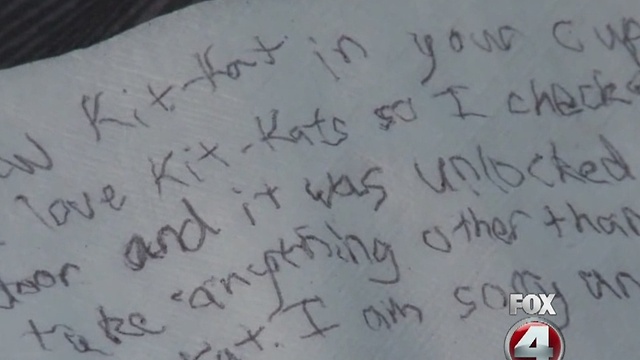 w Kit-Kat in your cup
love Kit-Kats so I check
door and it was unlocked
take anything other than
Kat. I am sorry an
FOX
4